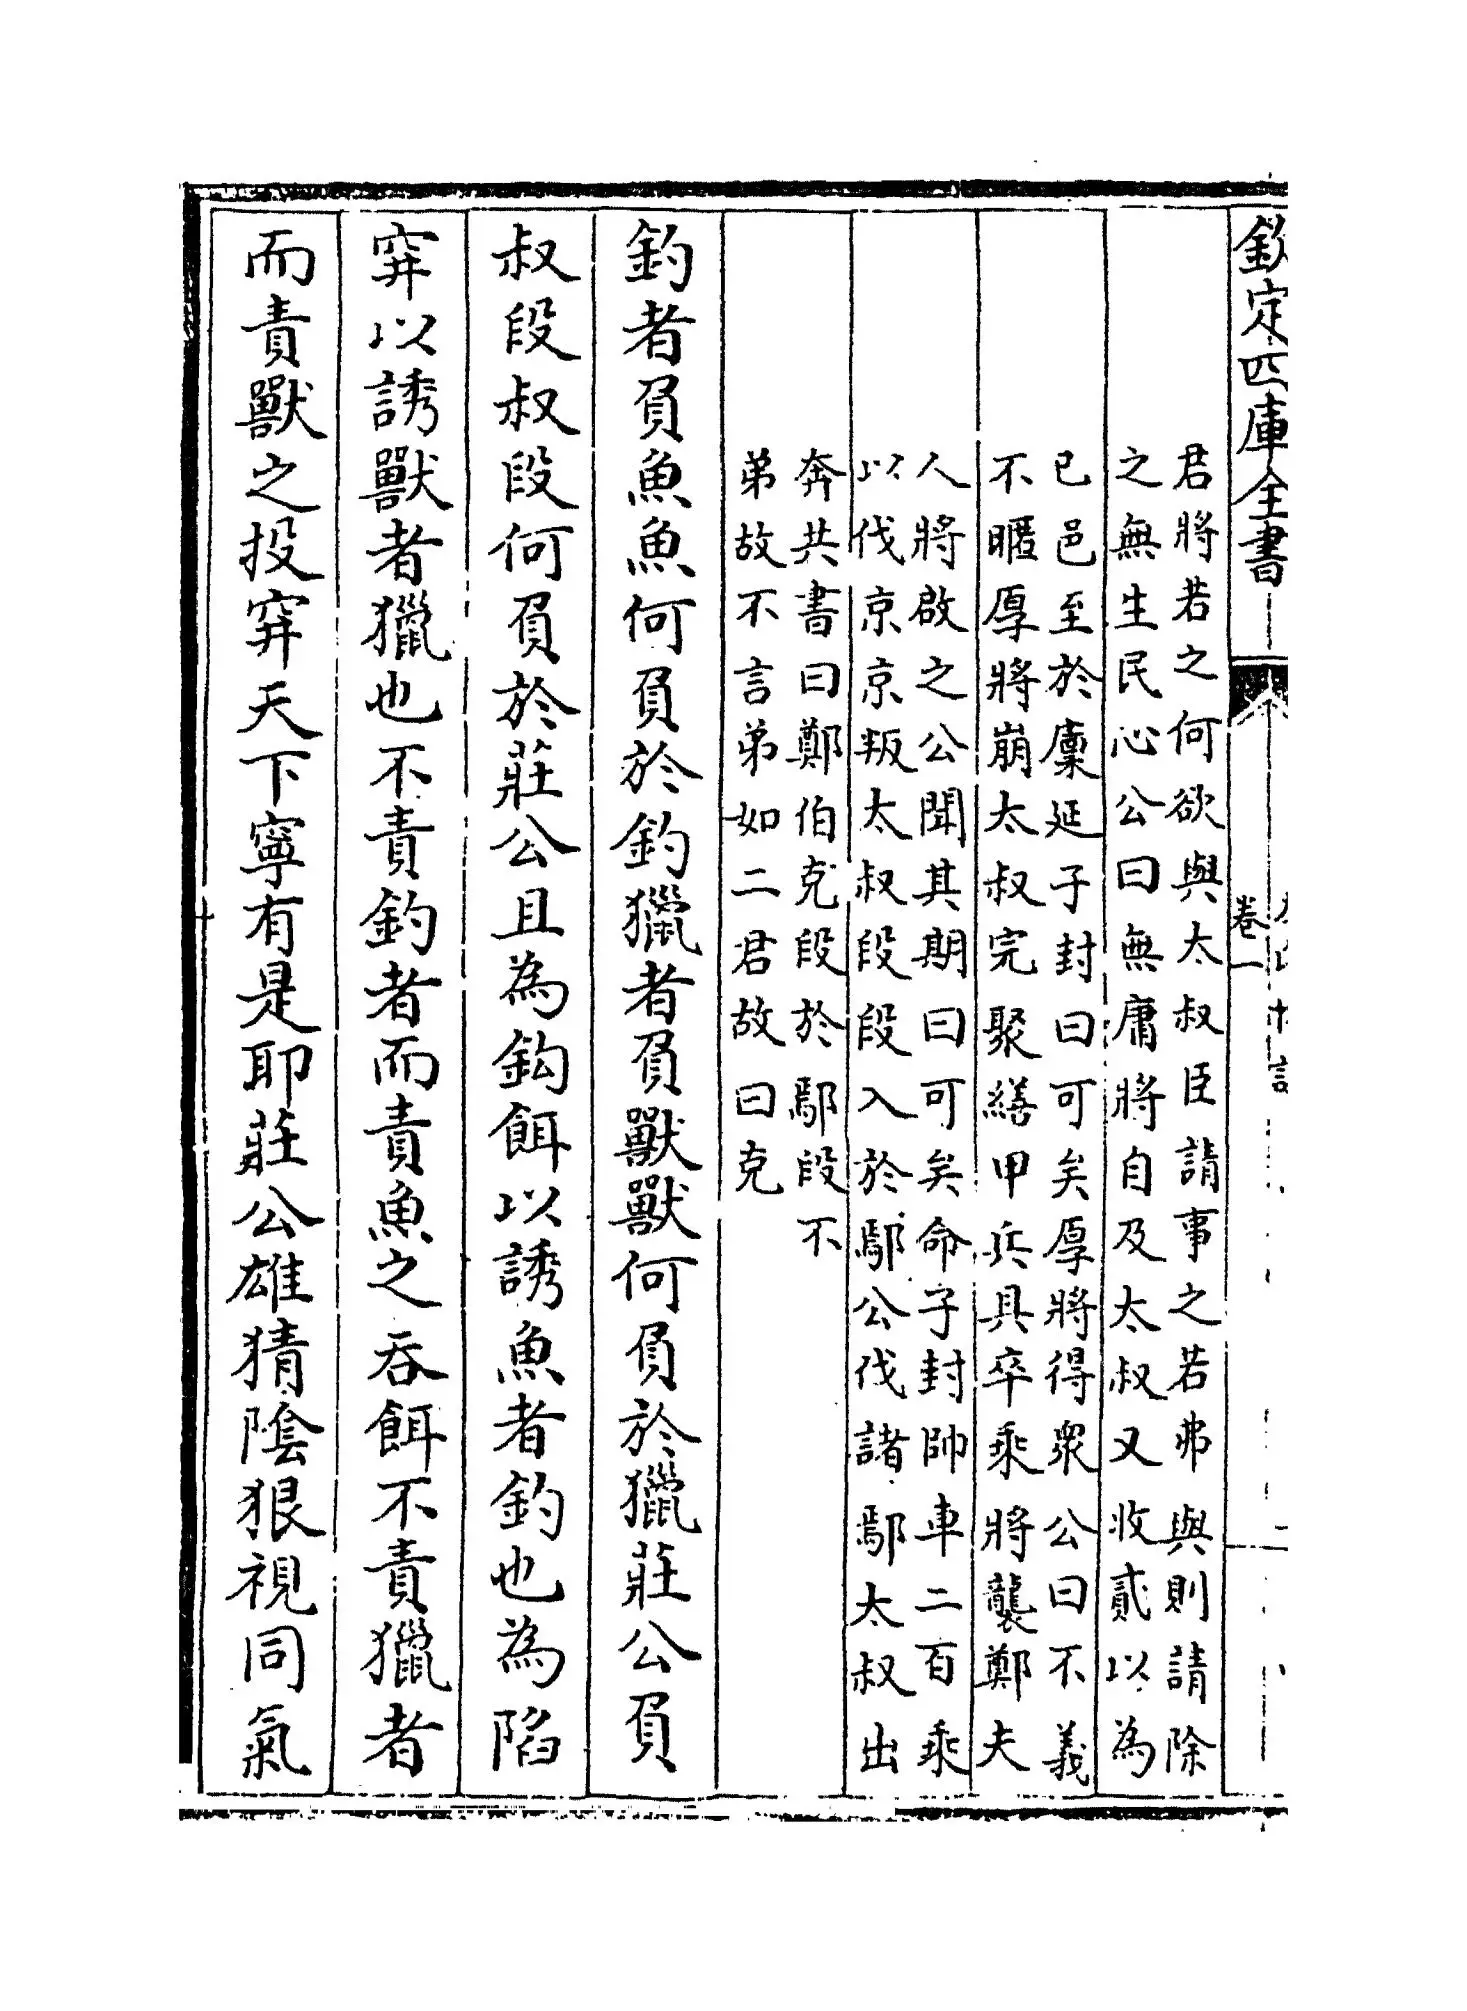 欽定四庫全書
卷一
君將若之何欲與太叔臣請事之若弗與則請除
之無生民心公曰無庸將自及太叔又收貳以為
已邑至於廩延子封曰可矣厚將得衆公曰不義
不暱厚將崩太叔完聚繕甲兵具卒乘將襲鄭夫
人將啟之公聞其期曰可矣命子封帥車二百乘
以伐京京叛太叔段段入於鄢公伐諸鄢太叔出
奔共書曰鄭伯克段於鄢段不
弟故不言弟如二君故曰克
釣者負魚魚何負於釣獵者負獸獸何負於獵莊公負
叔段叔段何負於莊公且為鈎餌以誘魚者釣也為陷
穽以誘獸者獵也不責釣者而責魚之吞餌不責獵者
而責獸之投穽天下寧有是耶莊公雄猜陰狠視同氣